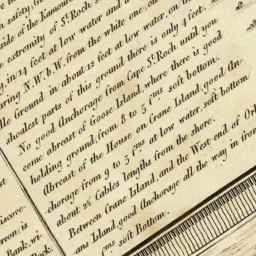 safety, G
side of the Kamour
e extremity of St. Rock s
at low water and
ly, in 24 feet at low water and
aring N.W.b.W. from the white one on
le Ground in about 12 feet at low water, on th
hoalest parts of this ground there is only 4 feet.
No good Anchorage from Cape St. Rock until you
come abreast of Goose Island, where there is good
holding ground, from 8 to 5 fms. soft bottom.
Abreast of the House on Crane Island, good An
chorage from 9 to 5 fms. at low water, soft bottom
about 2½ Cables lengths from the shore.
Between Crane Island, and the West end of Orl
ans Island, good Anchorage all the way in from
fms. soft Bottom.
iscove
ween; is
Bank wi
Rock,